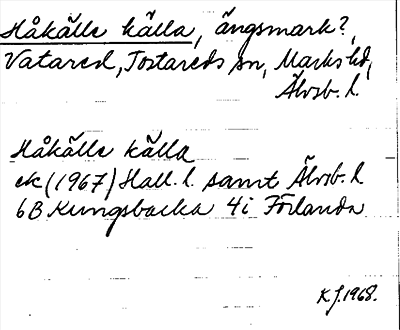 Håkälle källa, ängsmark?,
Vatared, Tostareds sn, Marks hd,
Älvsb. l.
Håkälle källa
ek (1967) Hall. l. samt Älvsb. l
6B Kungsbacka 4i Förlanda
K.J. 1968.